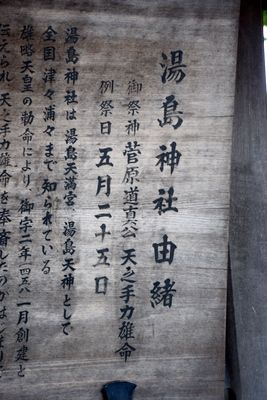 湯島神社由緒
御祭神 菅原道真公 天之手力雄命
例祭日 五月二十五日
湯島神社は 湯島天満宮、湯島天神として
全国津々浦々まで知られている
雄略天皇の勅命により、御宇二年四五八一月創建と
伝えられ 天之手力雄命を奉斎したのがはじまりで